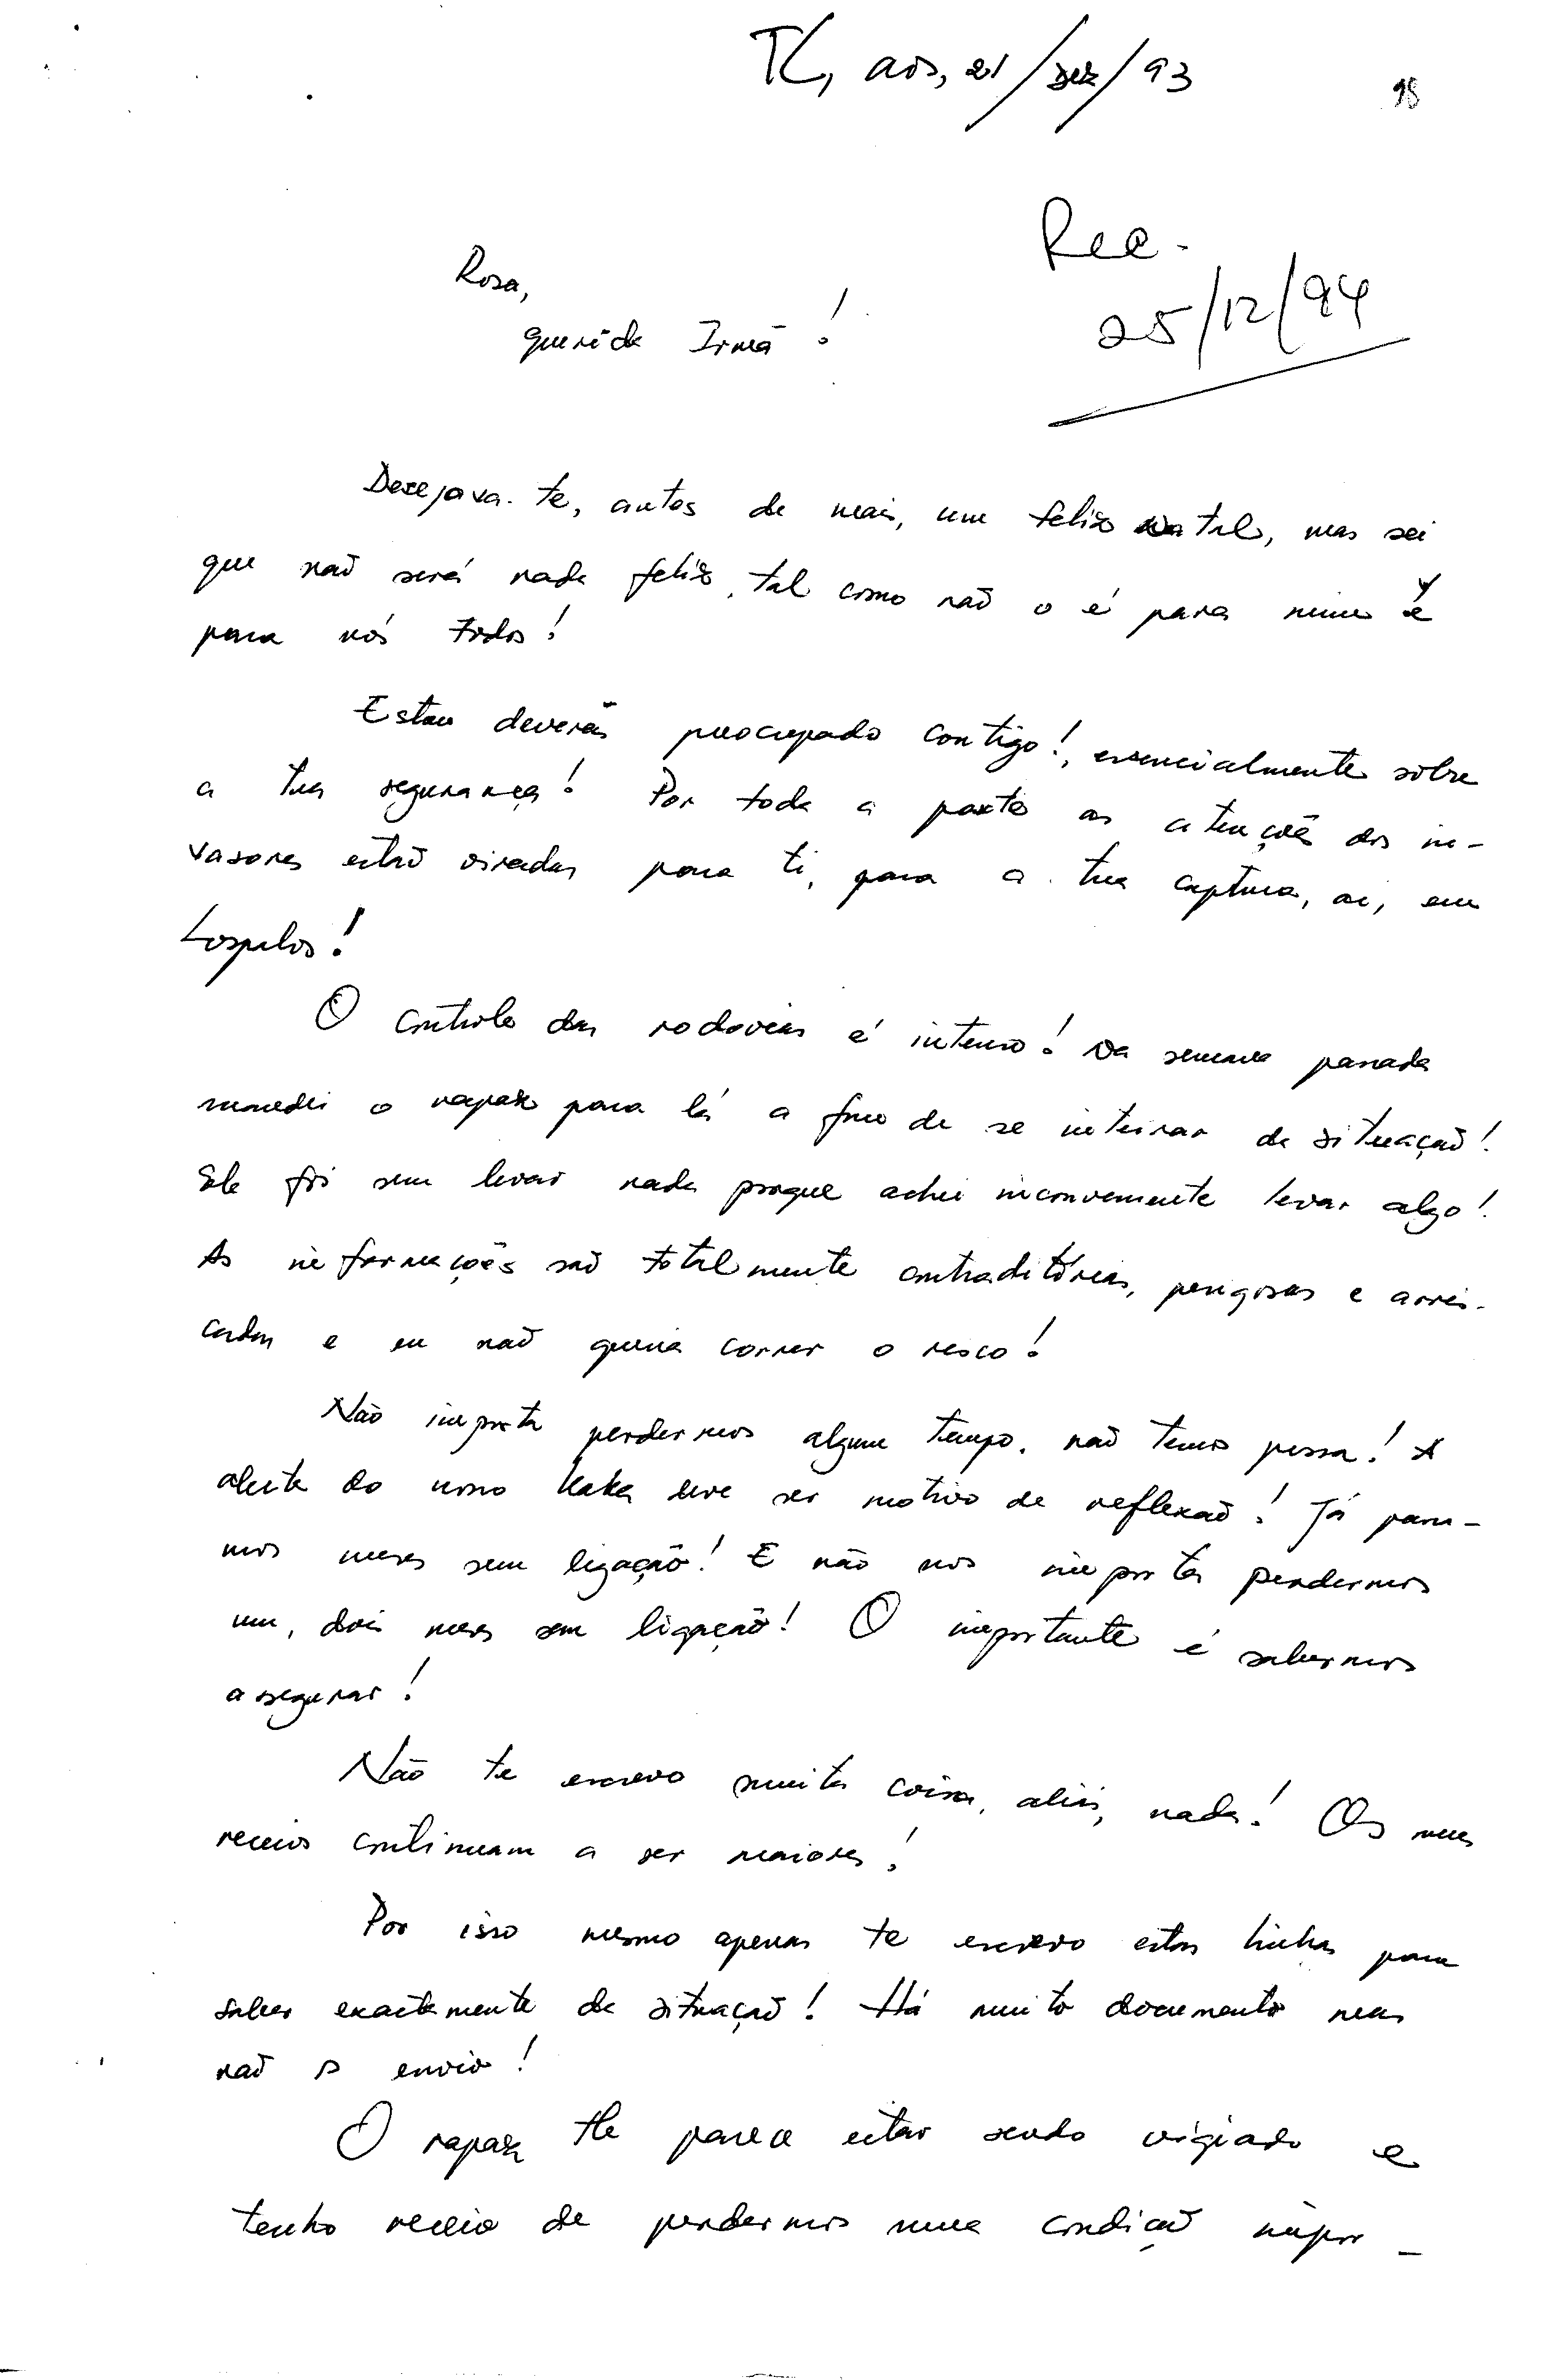 TL, aos, 21/Dez/93
98
Rec.
25/12/94
Rosa,
querida Irmã!
Desejava-te, antes de mais, um feliz Natal, mas sei
que naõ será nada feliz, tal como naõ o é para mim e
para nós todos!
Estou deverás preocupado contigo!, essencialmente sôbre
a tua segurança! Por toda a parte as atenções dos in-
vasores estaõ viradas para ti, para a tua captura, aí, em
Lospalos!
O controle das rodovias é intenso! Na semana passada
mandei o rapaz para lá a fim de se inteirar da situaçaõ!
Ele foi sem levar nada porque achei inconveniente levar algo!
As informações saõ totalmente contraditórias, perigosas e arris-
cadas e eu naõ queria correr o risco!
Não importa perdermos algum tempo, naõ temos pressa! A
alerta do nosso Kaka deve ser motivo de reflexaõ! Já passa-
mos meses sem ligação! E não nos importa perdermos
um, dois meses sem ligação! O importante é sabermos
assegurar!
Não te escrevo muita coisa, aliás, nada! Os meus
receios continuam a ser maiores!
Por isso mesmo apenas te escrevo estas linhas para
saber exactamente da situaçaõ! Há muito documento mas
naõ o envio!
O rapaz parece estar sendo vigiado e
tenho receio de perdermos uma condiçaõ impor-